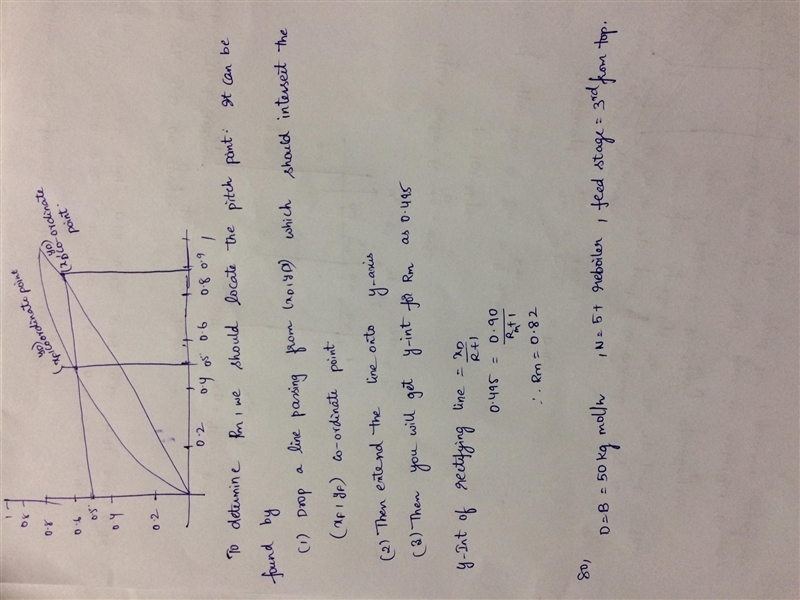 1
0.8
0.8
0.6
0.5
0.4
0.2
0.2
0.4
0.5
0.6
0.8
0.9
1
(xF, yF) coordinate point
(xD, yD) co-ordinate point.
To determine Rm, we should locate the pitch point. It can be
found by
(1) Drop a line passing from (xD, yD) which should intersect the
(xF, yF) co-ordinate point
(2) Then extend the line onto y-axis
(3) Then you will get y-int for Rm as 0.495
y-Int of rectifying line = xD / R+1
0.495 = 0.90 / Rm+1
∴ Rm = 0.82
So,
D=B = 50 kg mol/h , N = 5 + reboiler , feed stage = 3rd from top.